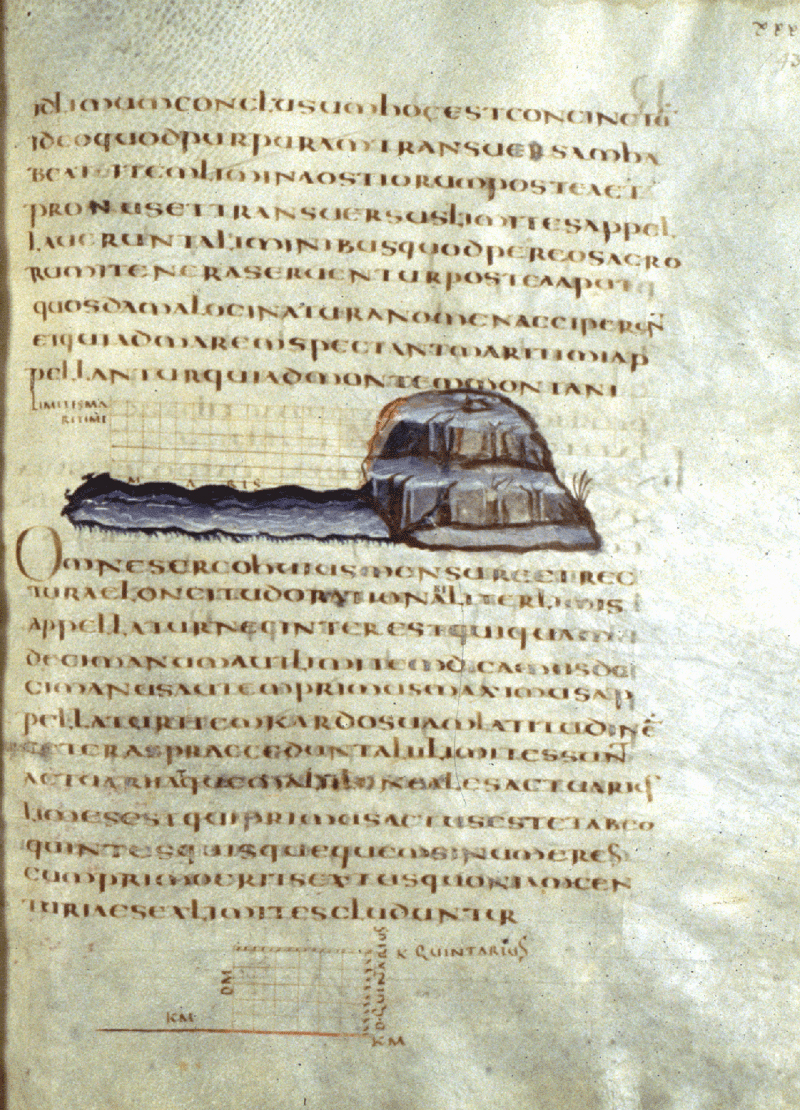 IDLIMUMCONCLUSUMHOCESTCONCINCTŪ
IDEOQUODPURPURAMTRANSUERSAMHA
BEAT ITEMLIMINAOSTIORUMPOSTEAET
PRONUSETTRANSUERSUSLIMITESAPPEL
LAUERUNTALIMINIBUSQUODPEREOSAGRO
RUMITENERASERUENTURPOSTEAAPOT
QUOSDAMALOCINATURANOMENACCIPERUN̄
EIQUIADMAREMSPECTANTMARITIMIAP
PELLANTURQUIADMONTEMMONTANI
LIMITISMA
RITIMI
MARIS
OMNESERGOHUIUSMENSURCETREC
TURAELONGITUDORATIONALITERLIMIS
APPELLATURNEQINTERESTQUIQUAM
DECIMANUMAUTLIMITEMDICAMUSDE
CIMANUSAUTEMPRIMUSMAXIMUSAP
PELLATURITEMKARDOSUAMLATITUDINĒ
CETERASPRAECEDUNTALIILIMITESSUN̄
ACTUARII
LIMESESTQUIPRIMUSACTUSESTETABEO
QUINTESQUISQUEQUEMSINUMERES
CUMPRIMOERITSEXTUSQUONIAMCEN
TURIAESEXLIMITESCLUDUNTUR
K QUINTARIUS
D QUINARIUS
DM
KM
KM